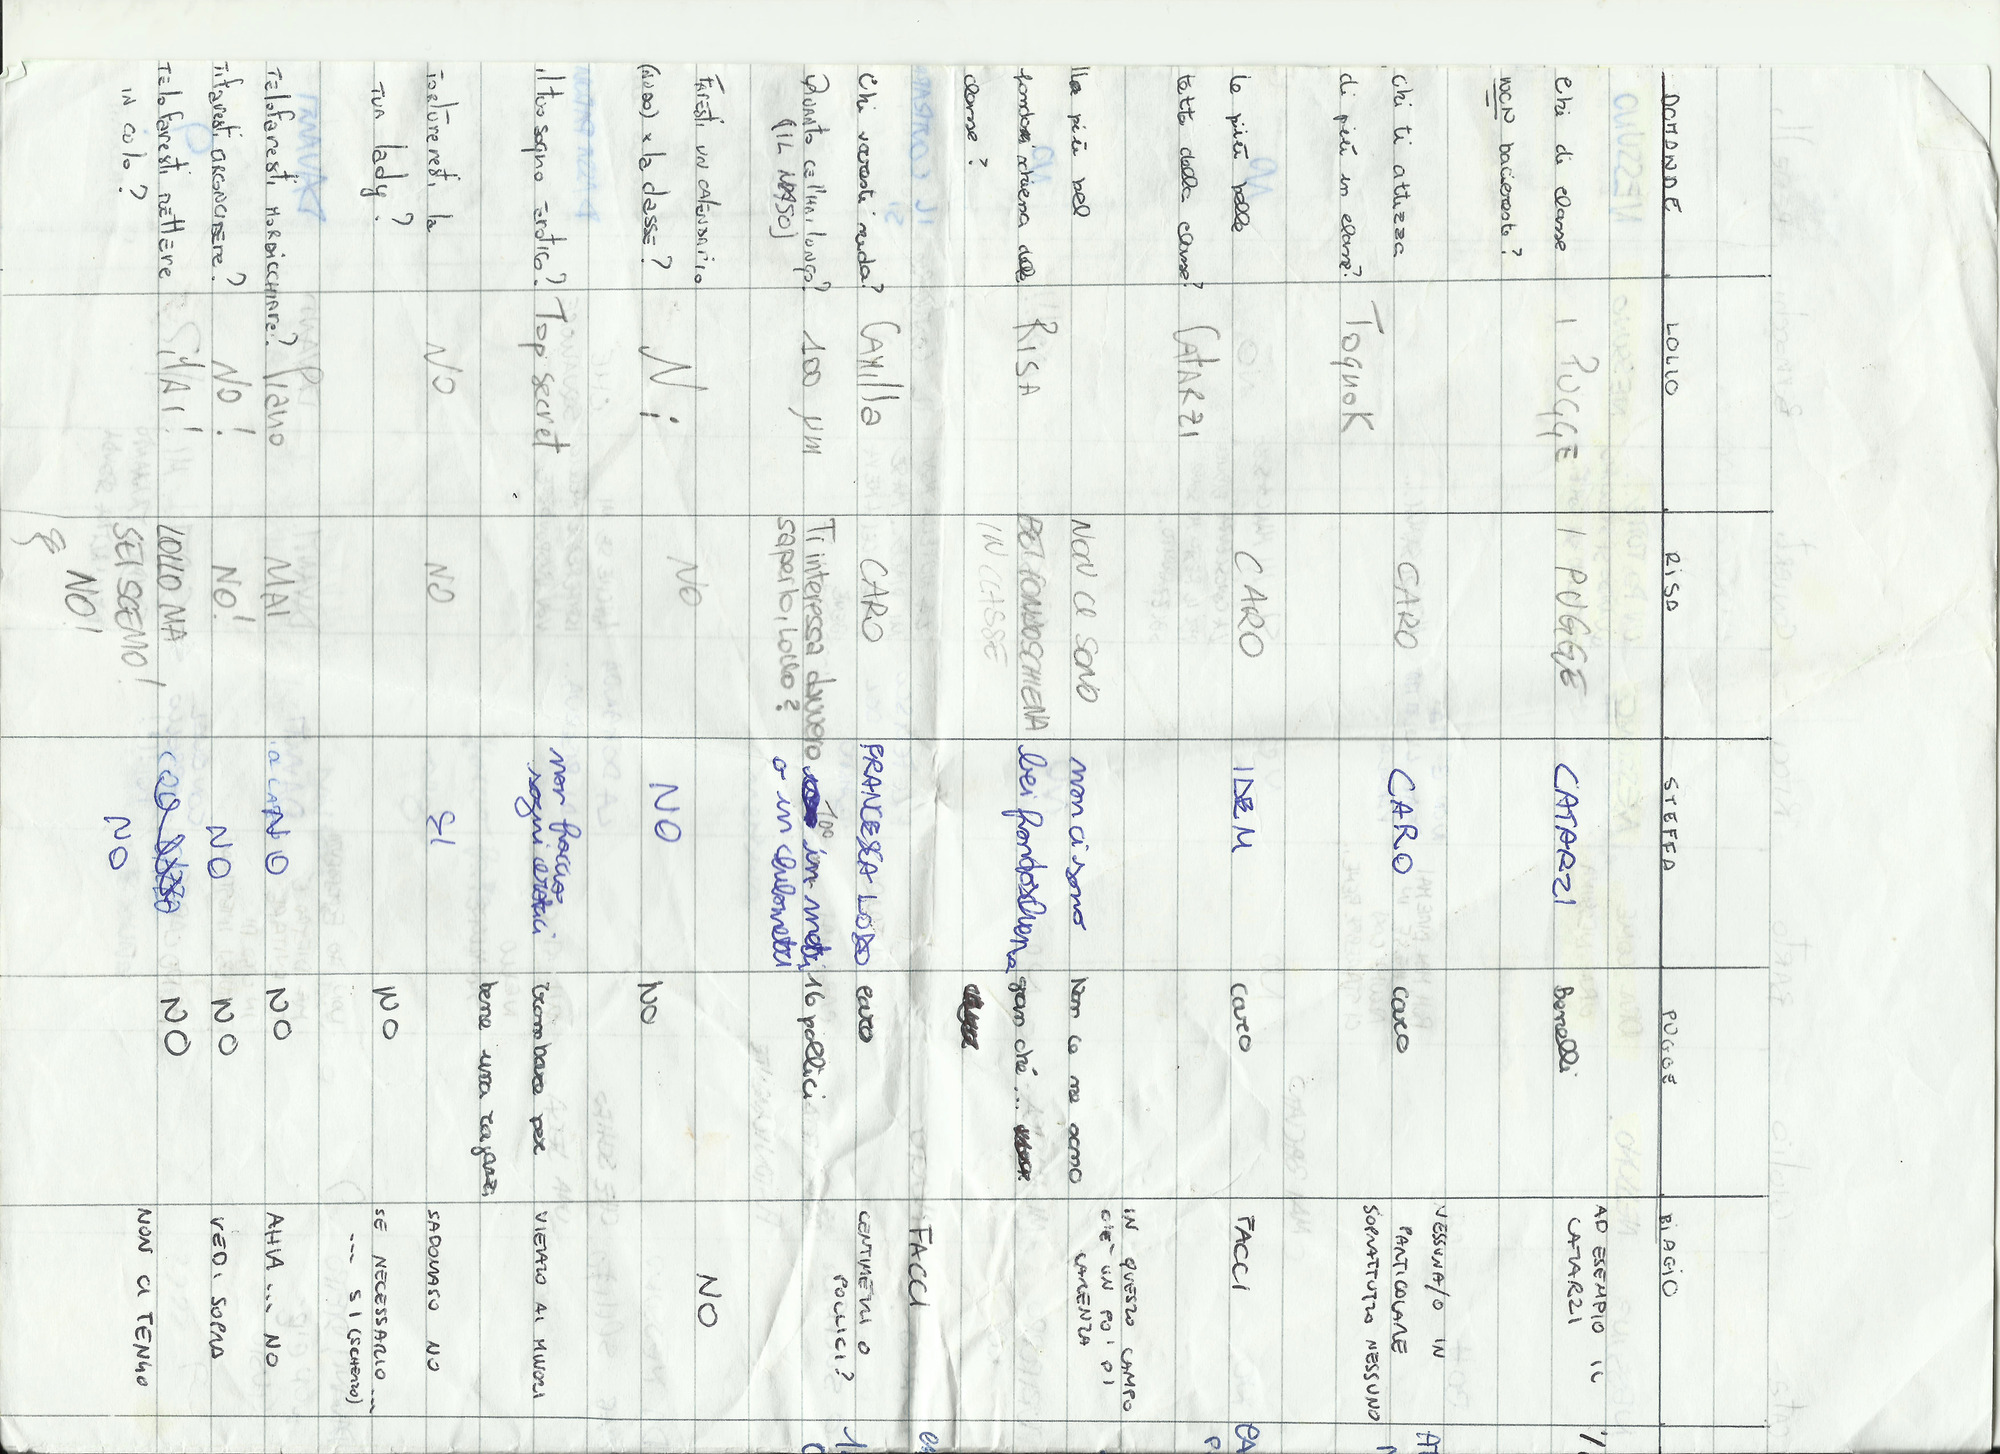 DOMANDE LOLLO RISA STEFFA PUGGE BIAGIO
Chi di classe 1 PUGGE 1 PUGGE CATARZI Benelli AD ESEMPIO IL
NON baceresti? CATARZI
Chi ti attizza CARO CARO caro NESSUNA/O IN
di più in classe? Toquok PARTICOLARE
SOPRATTUTTO NESSUNO
la più bella CARO IDEM caro FACCI
tutta della classe? CATARZI
Il più bel NON CE SONO non ci sono Non ce ne sono IN QUESTO CAMPO
fondoschiena della RISA BEI FONDOSCHIENA bei fondoschiena gran ché... C'È UN PO' DI
classe? IN CLASSE CARENZA
Chi vorresti nuda? CAMILLA CARO FRANCESCA LODO caro FACCI
Quanto ce l'hai lungo? 100 µm Ti interessa davvero 100 in metri 16 pollici CENTIMETRI O
(IL NASO) saperlo, Lollo? o in chilometri POLLICI?
FARESTI UN CALENDARIO
(NUDO) x la classe? Ni NO NO NO NO
il tuo sogno erotico? Top secret non faccio trombare per VIETATO AI MINORI
sogni erotici bene una ragazza
Tortureresti la NO NO SI SADOMASO NO
TUA lady? NO SE NECESSARIO...
... SI (SCHERZO)
TE LO FARESTI MORDICCHIARE? Piano MAI NO NO AHIA... NO
Ti faresti NO! NO! NO NO VEDI SOPRA
TE LO FARESTI METTERE LOLLO MA NO NON CI TENGO
IN CULO? SEI SCEMO! NO
NO!